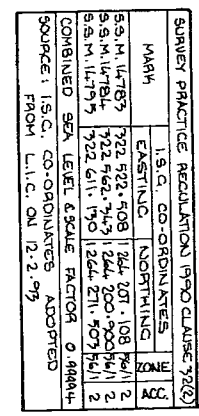 SURVEY PRACTICE REGULATION 1990 CLAUSE 32(2)
MARK I.S.G. CO-ORDINATES ZONE ACC.
EASTING NORTHING
S.S.M. 14783 322 522·508 1 264 207·108 56/1 2
S.S.M. 14784 322 562·343 1 264 200·900 56/1 2
S.S.M. 14795 322 611·130 1 264 271·503 56/1 2
COMBINED SEA LEVEL & SCALE FACTOR 0.99994
SOURCE: I.S.G. CO-ORDINATES ADOPTED
FROM L.I.C. ON 12·2·93